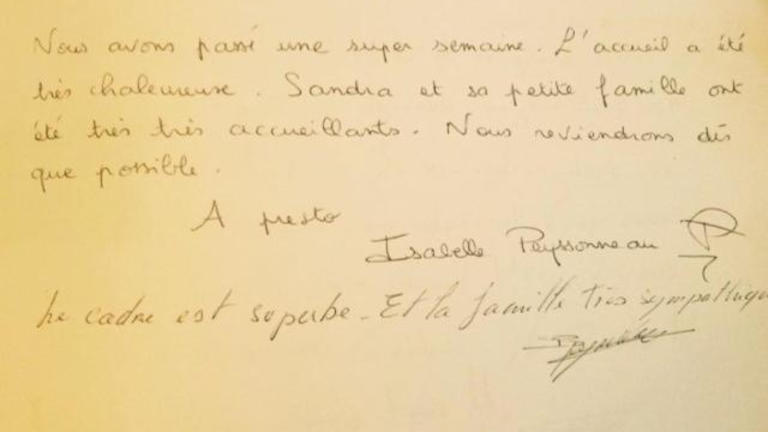 Nous avons passé une super semaine. L'accueil a été
très chaleureuse. Sandra et sa petite famille ont
été très très accueillants. Nous reviendrons dès
que possible.
A presto
Isabelle Peyssonneau
Le cadre est superbe. Et la famille très sympathique